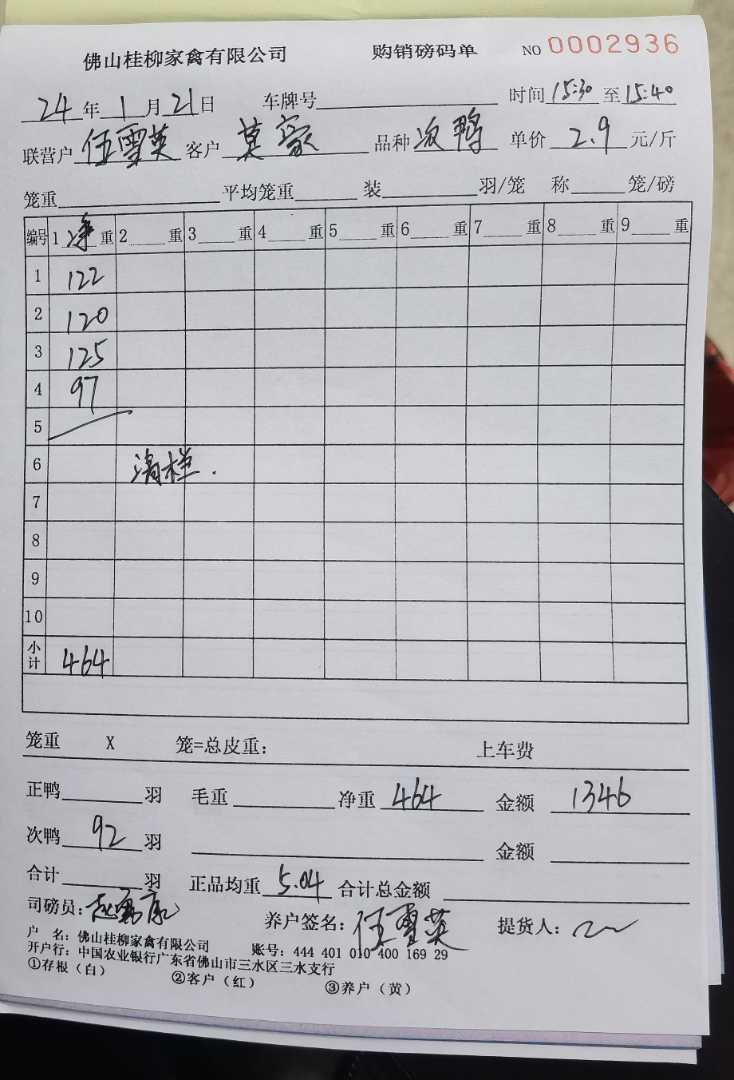 佛山桂柳家禽有限公司 购销磅码单 NO 0002936
24年1月21日 车牌号 时间15:30至15:40
联营户 伍雪英 客户 莫豪 品种 次鸭 单价 2.9 元/斤
笼重 平均笼重 装 羽/笼 称 笼/磅
编号 1 净 重 2 重 3 重 4 重 5 重 6 重 7 重 8 重 9 重
1 122
2 120
3 125
4 97
5
6 清栏.
7
8
9
10
小计 464
笼重 X 笼=总皮重: 上车费
正鸭 羽 毛重 净重 464 金额 1346
次鸭 92 羽 金额
合计 羽 正品均重 5.04 合计总金额
司磅员: 养户签名: 伍雪英 提货人:
户 名: 佛山桂柳家禽有限公司 账号: 444 401 010 400 169 29
开户行: 中国农业银行广东省佛山市三水区三水支行
①存根(白) ②客户(红) ③养户(黄)